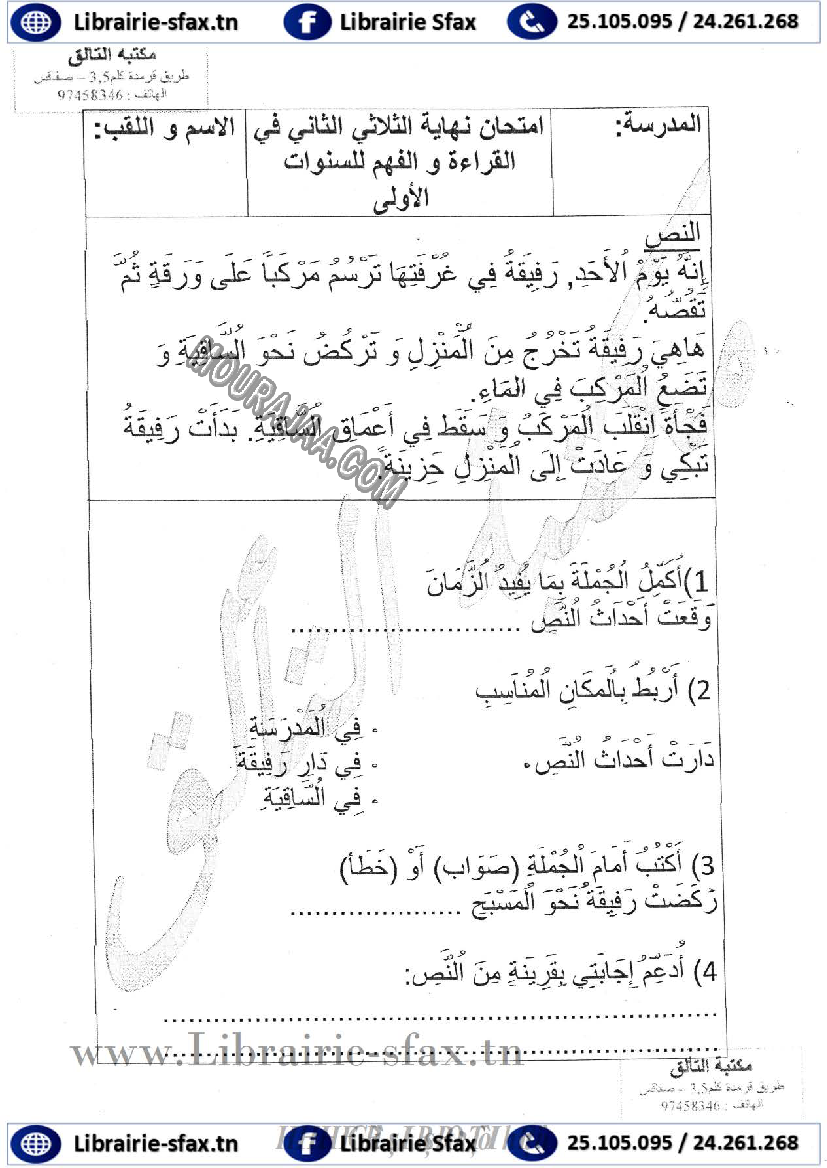 Librairie-sfax.tn Librairie Sfax 25.105.095 / 24.261.268
مكتبة التالق
طريق قرمدة كلم3,5 – صفاقس
الهاتف : 97458346
المدرسة:
امتحان نهاية الثلاثي الثاني في
القراءة و الفهم للسنوات
الأولى
الاسم و اللقب:
النص
إِنَّهُ يَوْمُ الْأَحَدِ, رَفِيقَةُ فِي غُرْفَتِهَا تَرْسُمُ مَرْكَباً عَلَى وَرَقَةٍ ثُمَّ
تَقُصُّهُ.
هَاهِيَ رَفِيقَةُ تَخْرُجُ مِنَ الْمَنْزِلِ وَ تَرْكُضُ نَحْوَ السَّاقِيَةِ وَ
تَضَعُ الْمَرْكَبَ فِي المَاءِ.
فَجْأَةً اِنْقَلَبَ الْمَرْكَبُ وَ سَقَطَ فِي أَعْمَاقِ السَّاقِيَةِ. بَدَأَتْ رَفِيقَةُ
تَبْكِي وَ عَادَتْ إِلَى الْمَنْزِلِ حَزِينَةً.
MOURAJAA.COM
1)أُكَمِّلُ الْجُمْلَةَ بِمَا يُفِيدُ الزَّمَانَ
وَقَعَتْ أَحْدَاثُ النَّصِّ ........................
2) أَرْبُطُ بِالْمَكَانِ الْمُنَاسِبِ
• فِي الْمَدْرَسَةِ
دَارَتْ أَحْدَاثُ النَّصِّ•
• فِي دَارِ رَفِيقَةَ
• فِي السَّاقِيَةِ
3) أَكْتُبُ أَمَامَ الْجُمْلَةِ (صَوَاب) أَوْ (خَطَأ)
رَكَضَتْ رَفِيقَةُ نَحْوَ الْمَسْبَحِ ..................
4) أُدَعِّمُ إِجَابَتِي بِقَرِينَةٍ مِنَ النَّصِّ:
............................................................
............................................................
www.Librairie-sfax.tn
مكتبة التالق
طريق قرمدة كلم3,5 – صفاقس
الهاتف : 97458346
Librairie-sfax.tn Librairie Sfax 25.105.095 / 24.261.268